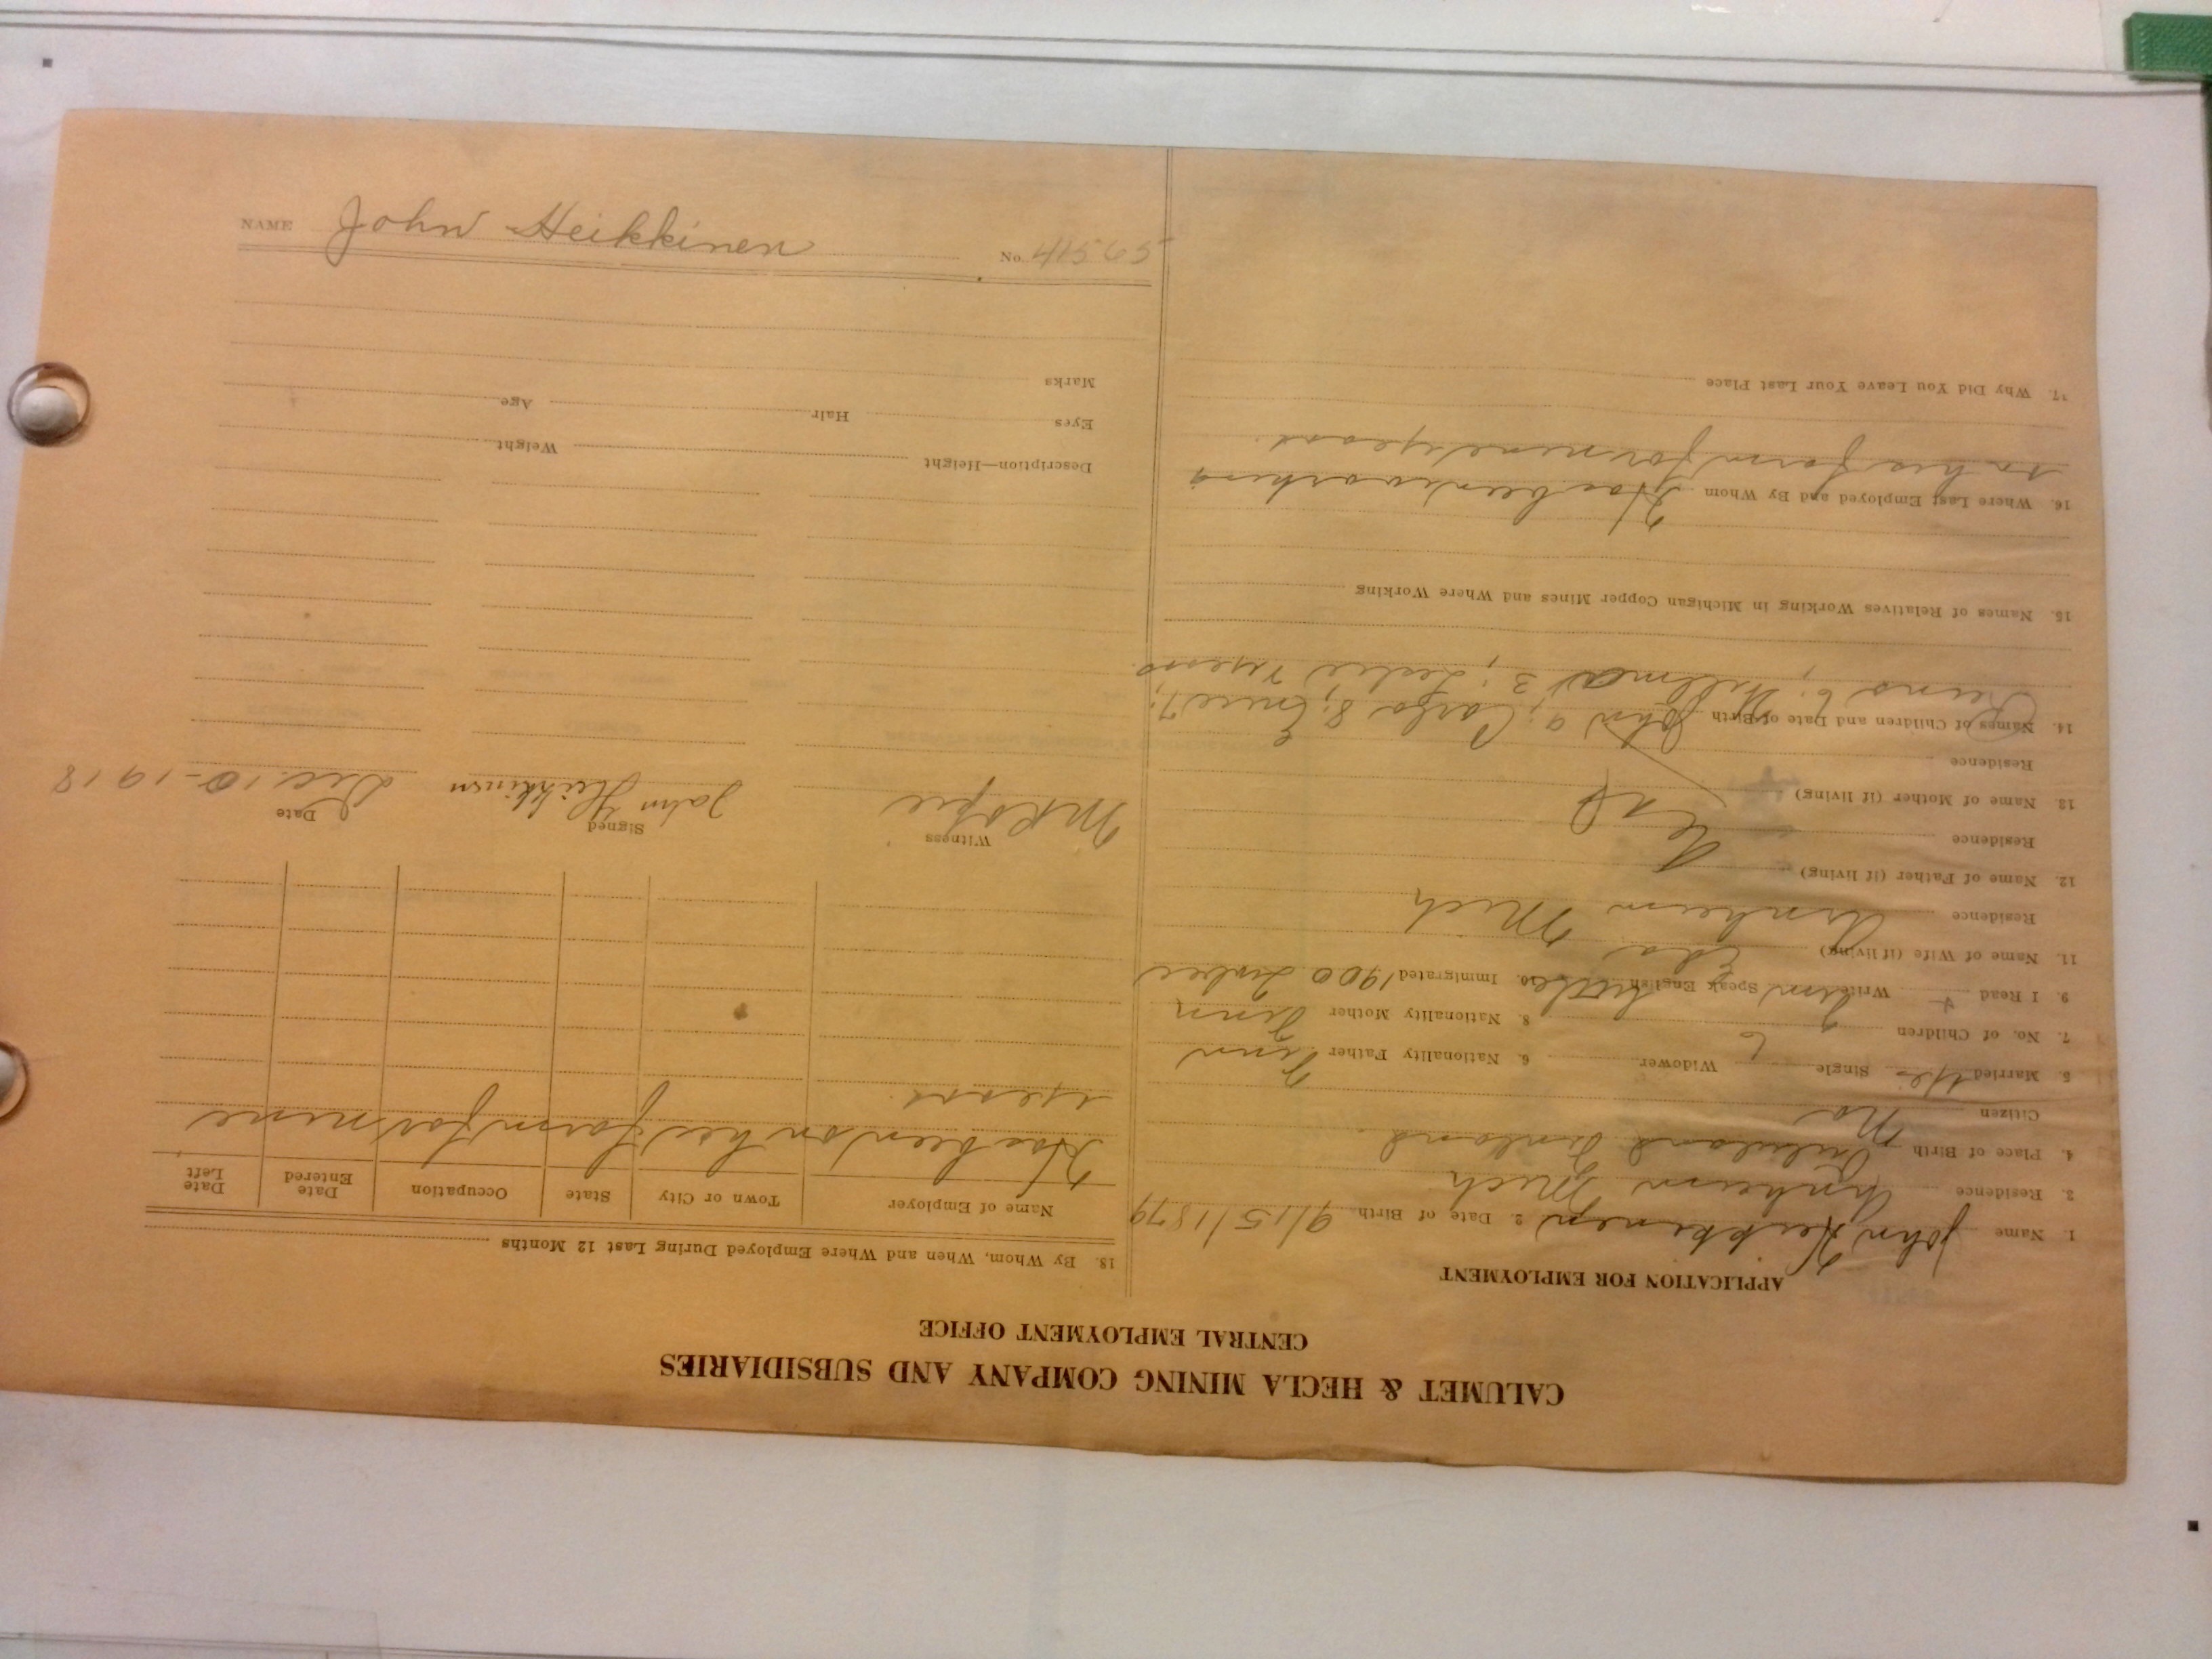 NAME John Heikkinen No. 41565
CALUMET & HECLA MINING COMPANY AND SUBSIDIARIES
CENTRAL EMPLOYMENT OFFICE
APPLICATION FOR EMPLOYMENT
1. Name John Heikkinen 2. Date of Birth 9/15/1879
3. Residence Arnheim Mich
4. Place of Birth Finland
Citizen No
5. Married Yes Single Widower 6. Nationality Father Finn
7. No. of Children 6 8. Nationality Mother Finn
9. I Read + Write Finn Speak English Little 10. Immigrated 1900
11. Name of Wife (if living) Eda
Residence Arnheim Mich
12. Name of Father (if living)
Residence
13. Name of Mother (if living)
Residence
14. Names of Children and Date of Birth John 9; 8; 7;
6; 3;
15. Names of Relatives Working in Michigan Copper Mines and Where Working
16. Where Last Employed and By Whom Has been working
on his farm for nine years.
17. Why Did You Leave Your Last Place
18. By Whom, When and Where Employed During Last 12 Months
Name of Employer Town or City State Occupation Date Entered Date Left
Has been on his farm for nine
years.
Witness Signed John Heikkinen Date Dec. 10-1918
Description—Height Weight
Eyes Hair Age
Marks